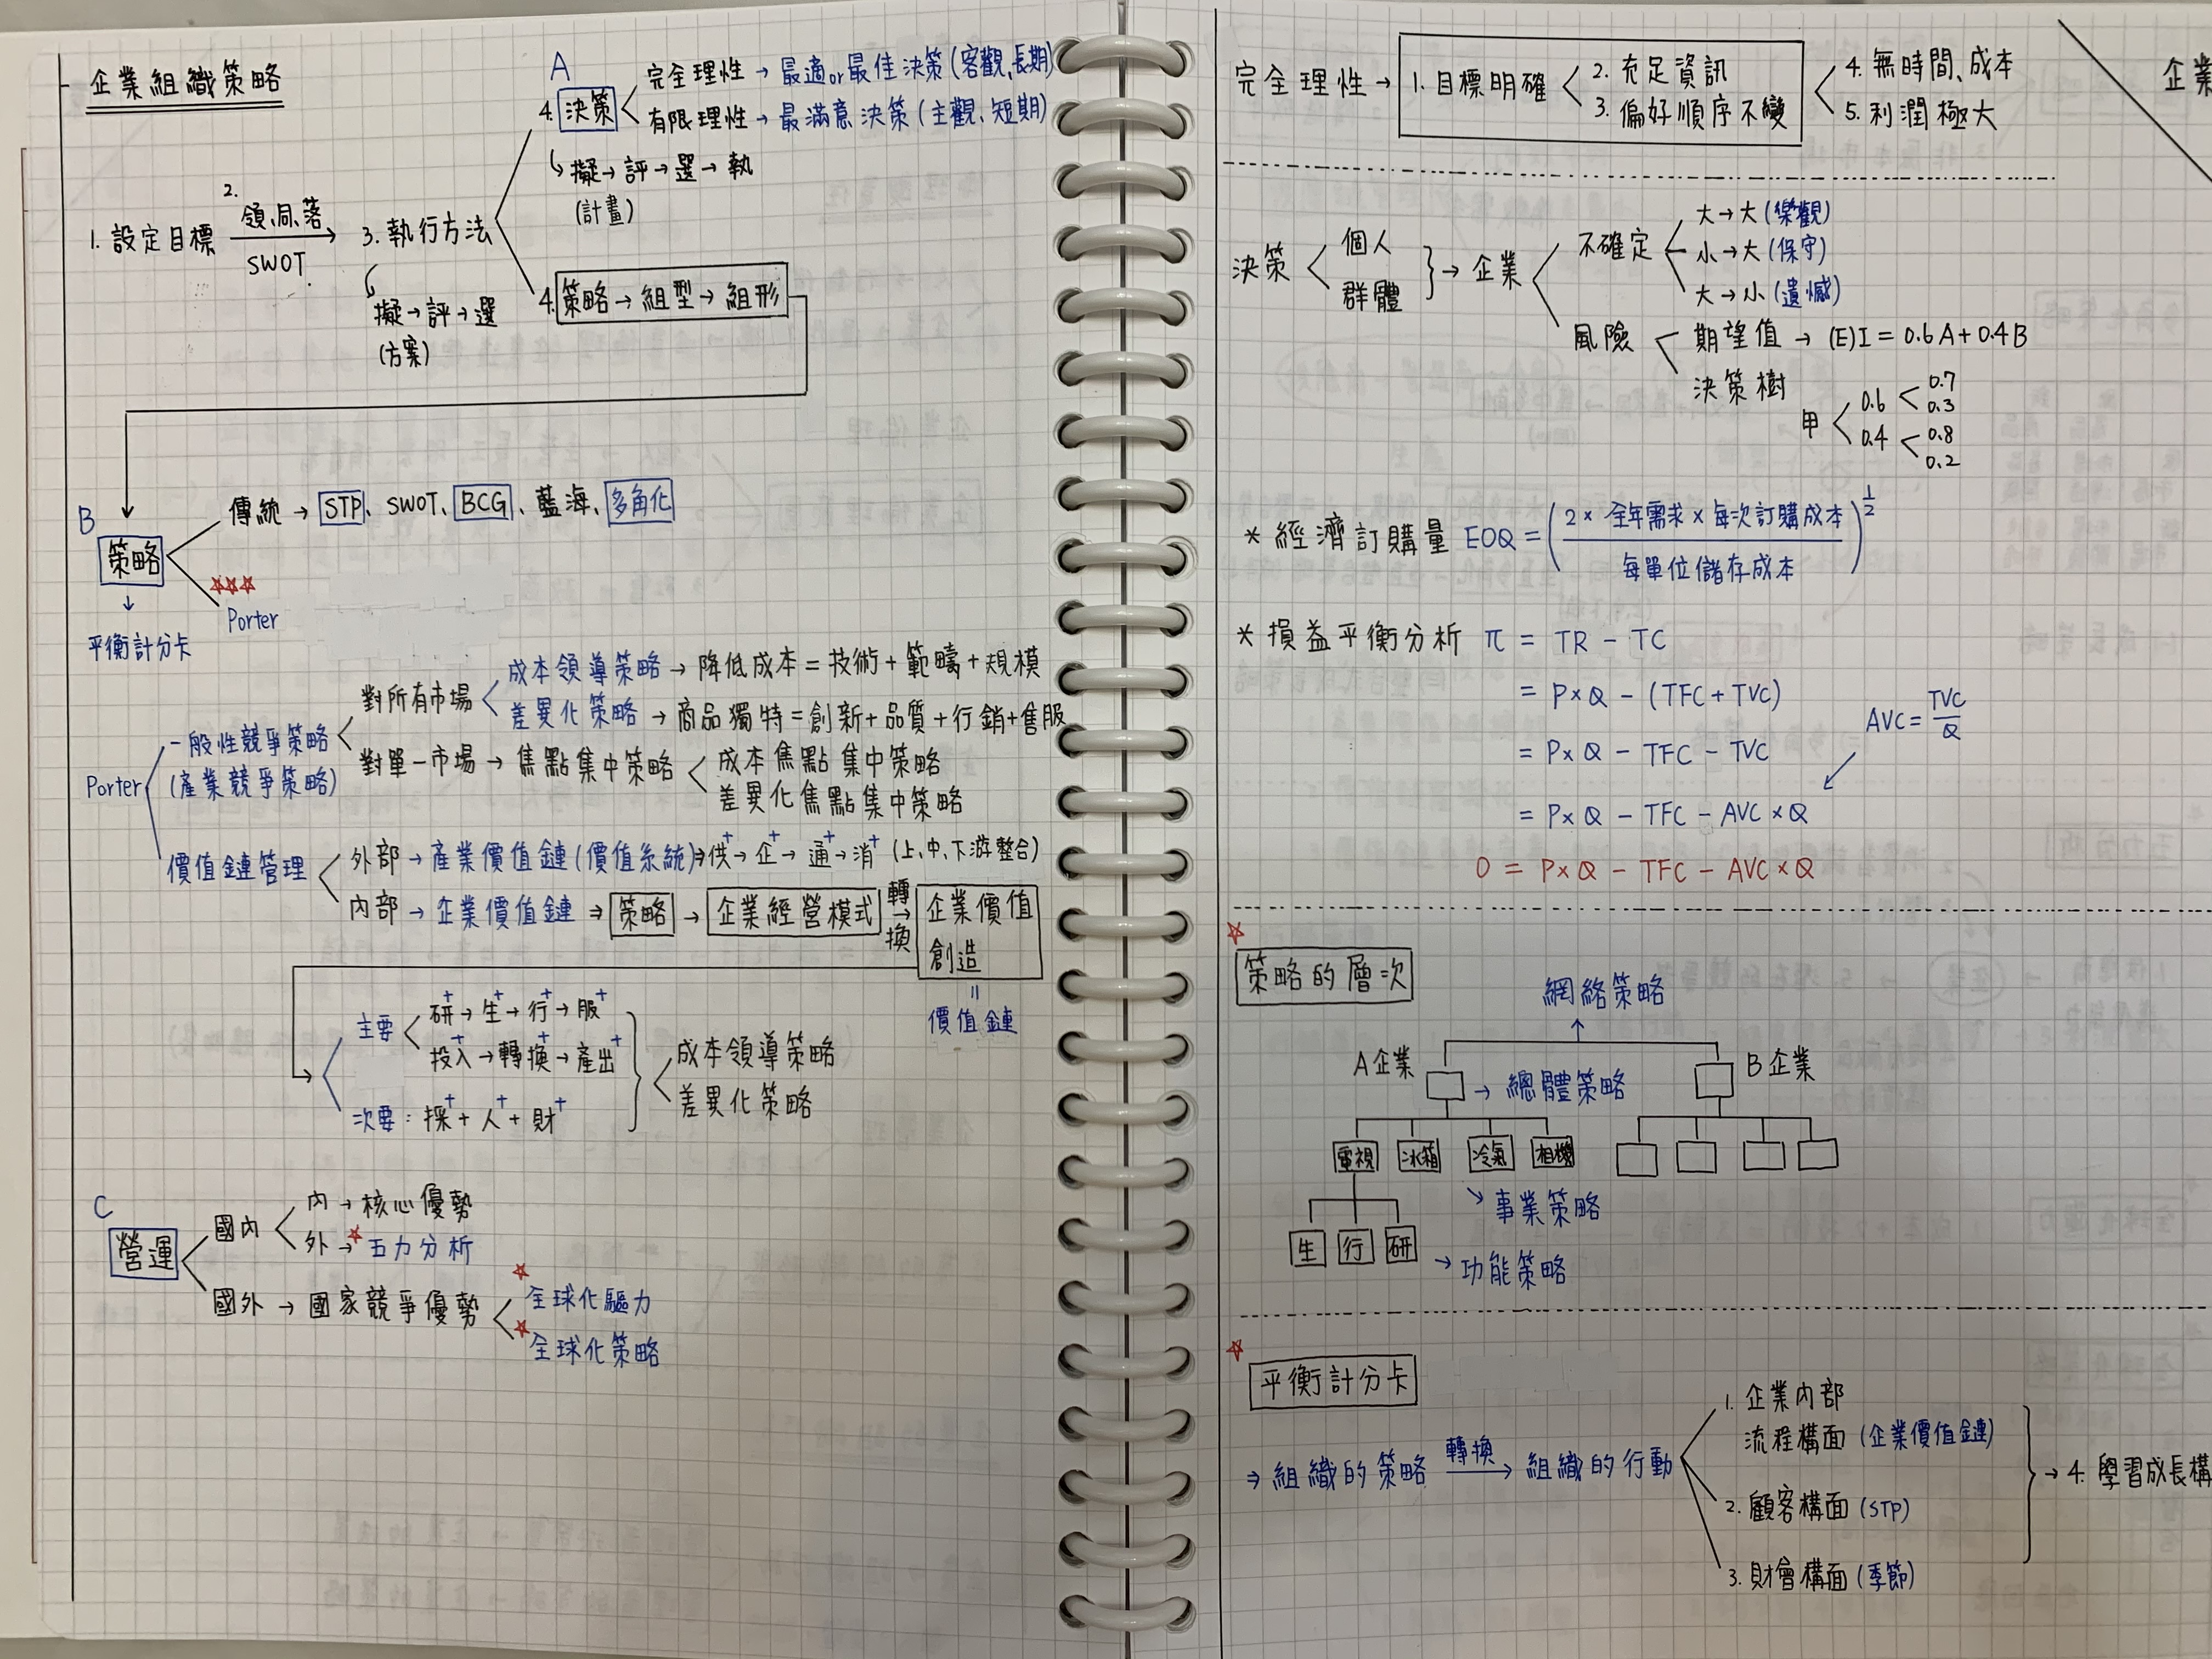 企業組織策略
A
4. 決策
完全理性 → 最適or最佳決策(客觀、長期)
有限理性 → 最滿意決策(主觀、短期)
擬→評→選→執
(計畫)
1. 設定目標
2.
領、同、落
SWOT
3. 執行方法
擬→評→選
(方案)
4. 策略→組型→組形
B
策略
傳統 → STP、SWOT、BCG、藍海、多角化
Porter
↓
平衡計分卡
Porter
一般性競爭策略
(產業競爭策略)
對所有市場
成本領導策略 → 降低成本 = 技術 + 範疇 + 規模
差異化策略 → 商品獨特 = 創新 + 品質 + 行銷 + 售服
對單一市場 → 焦點集中策略
成本焦點集中策略
差異化焦點集中策略
價值鏈管理
外部 → 產業價值鏈(價值系統) ⇒ 供⁺→企⁺→通⁺→消⁺ (上、中、下游整合)
內部 → 企業價值鏈 ⇒ 策略 → 企業經營模式 轉換→ 企業價值
創造
=
價值鏈
主要
研⁺→生⁺→行⁺→服⁺
投入⁺→轉換⁺→產出⁺
次要：採⁺ + 人⁺ + 財⁺
成本領導策略
差異化策略
C
營運
國內
內 → 核心優勢
外 → 五力分析
國外 → 國家競爭優勢
全球化驅力
全球化策略
完全理性 → 1. 目標明確
2. 充足資訊
3. 偏好順序不變
4. 無時間、成本
5. 利潤極大
企業
決策
個人
群體
→ 企業
不確定
大→大(樂觀)
小→大(保守)
大→小(遺憾)
風險
期望值 → (E)I = 0.6A + 0.4B
決策樹
甲
0.6
0.7
0.3
0.4
0.8
0.2
* 經濟訂購量 EOQ = (2 × 全年需求 × 每次訂購成本 / 每單位儲存成本)^½
* 損益平衡分析 π = TR - TC
= P×Q - (TFC + TVC)
= P×Q - TFC - TVC
AVC = TVC/Q
= P×Q - TFC - AVC×Q
0 = P×Q - TFC - AVC×Q
策略的層次
網絡策略
A企業
→ 總體策略
B企業
電視 冰箱 冷氣 相機
事業策略
生 行 研
→ 功能策略
平衡計分卡
⇒ 組織的策略 轉換→ 組織的行動
1. 企業內部
流程構面(企業價值鏈)
2. 顧客構面(STP)
3. 財會構面(季節)
→ 4. 學習成長構